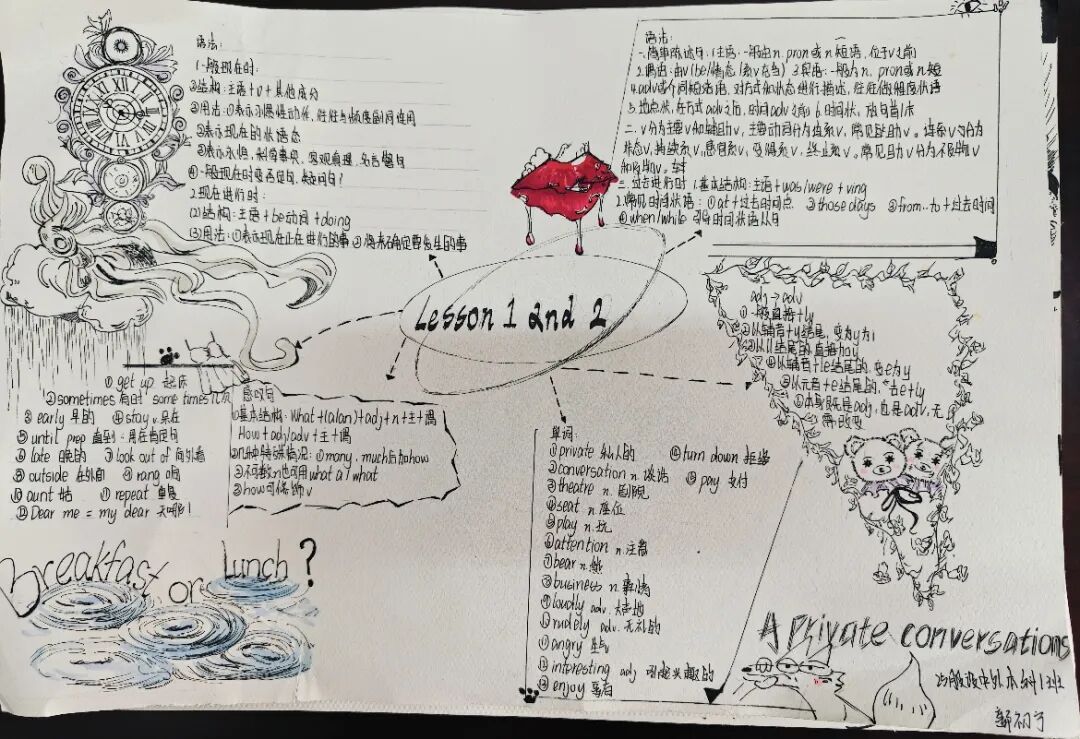 语法:
1.一般现在时:
①结构:主语+v+其他成分
②用法:①表示习惯性动作,往往与频度副词连用
②表示现在的状态
④一般现在时变否定句、疑问句?
2.现在进行时:
(2)结构:主语+be动词+doing
(3)用法:①表示现在正在进行的事②将来确定要发生的事
语法:
一、简单陈述句:1主语:一般由n. pron或n短语,位于v之前
2.谓语:由v(be/情态/系v充当) 3宾语:一般为n. pron或n短
4.adv或介词短语,对方式和状态进行描述,往往做程度状语
5.地点状,在方式adv之后,时间adv之前 6.时间状,放句首/末
二、v分为主要v和辅助v
三、过去进行时 1.基本结构:主语+was/were+ving
2.常见时间状语:①at+过去时间点 ②those days ③from..to+过去时间
④when/while 引导时间状语从句
Lesson 1 and 2
adj→adv
①一般直接+ly
②以辅音+y结尾,变y为i
③以ll结尾的直接加y
④以辅音+le结尾的,变e为y
⑤以元音+e结尾的,去e+ly
⑥本身既是adj,也是adv,无
需改变
①get up 起床
②sometimes 有时 some times 几次
③early 早的 ④stay v.呆在
⑤until prep 直到
⑥late 晚的 ⑦look out of 向外看
⑧outside 在外面 ⑨rang 响
⑩aunt 姑 ⑪repeat 重复
⑫Dear me = my dear 天哪!
感叹句
①基本结构:What+(a/an)+adj+n+主+谓
How+adj/adv+主+谓
②几种特殊情况:①many、much后加how
②不可数n也可用what a / what
③how可修饰v
单词:
①private 私人的 ⑭turn down 拒绝
②conversation n.谈话 ⑮pay 支付
③theatre n.剧院
④seat n.座位
⑤play n.玩
⑥attention n.注意
⑦bear n.熊
⑧business n.事情
⑨loudly adv.大声地
⑩rudely adv.无礼的
⑪angry 生气
⑫interesting adj
⑬enjoy 喜欢
Breakfast or Lunch?
A Private conversations